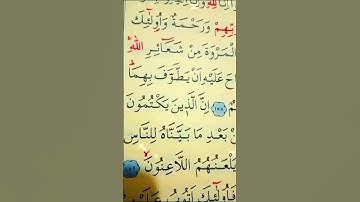 وَرَحْمَةٌ وَاُولٰٓئِكَ
الْمَرْوَةَ مِنْ شَعَٓائِرِ اللّٰهِ
عَلَيْهِ اَنْ يَطَّوَّفَ بِهِمَا
١٥٨ اِنَّ الَّذ۪ينَ يَكْتُمُونَ
بَعْدِ مَا بَيَّنَّاهُ لِلنَّاسِ
يَلْعَنُهُمُ اللَّاعِنُونَ
فَاُولٰٓئِكَ اَتُوبُ